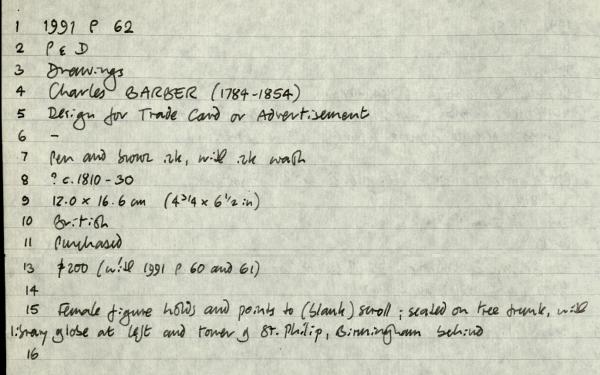 1 1991 P 62
2 P & D
3 Drawings
4 Charles BARBER (1784-1854)
5 Design for Trade Card or Advertisement
6 –
7 Pen and brown ink, with ink wash
8 ? c.1810-30
9 12.0 x 16.6 cm (4 3/4 x 6 1/2 in)
10 British
11 Purchased
13 £200 (with 1991 P 60 and 61)
14
15 Female figure holds and points to (blank) scroll; seated on tree trunk, with
library globe at left and tower of St. Philip, Birmingham behind
16